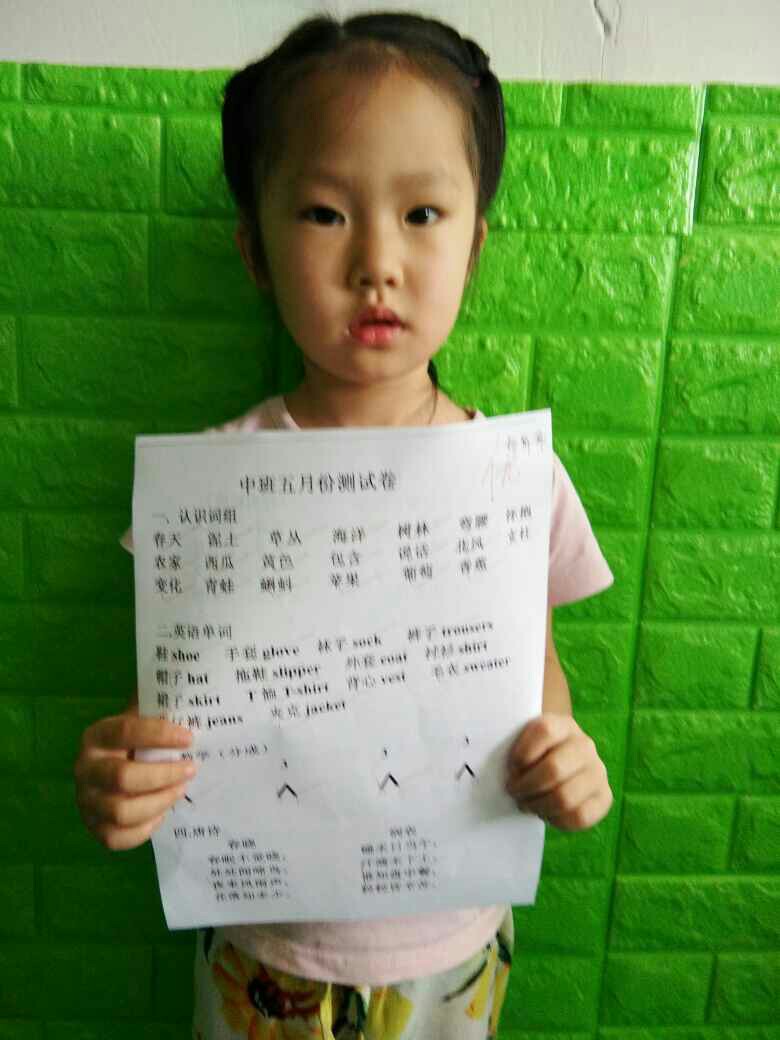 优
中班五月份测试卷
一、认识词组
春天 泥土 草丛 海洋 树林 弯腰 怀抱
农家 西瓜 黄色 包含 说话 北风 支柱
变化 青蛙 蝌蚪 苹果 葡萄 香蕉
二英语单词
鞋 shoe 手套 glove 袜子 sock 裤子 trousers
帽子 hat 拖鞋 slipper 外套 coat 衬衫 shirt
裙子 skirt T恤 T-shirt 背心 vest 毛衣 sweater
仔裤 jeans 夹克 jacket
数学(分成)
3 3 3
四.唐诗
春晓 悯农
春眠不觉晓, 锄禾日当午,
处处闻啼鸟。 汗滴禾下土。
夜来风雨声, 谁知盘中餐,
花落知多少。 粒粒皆辛苦。